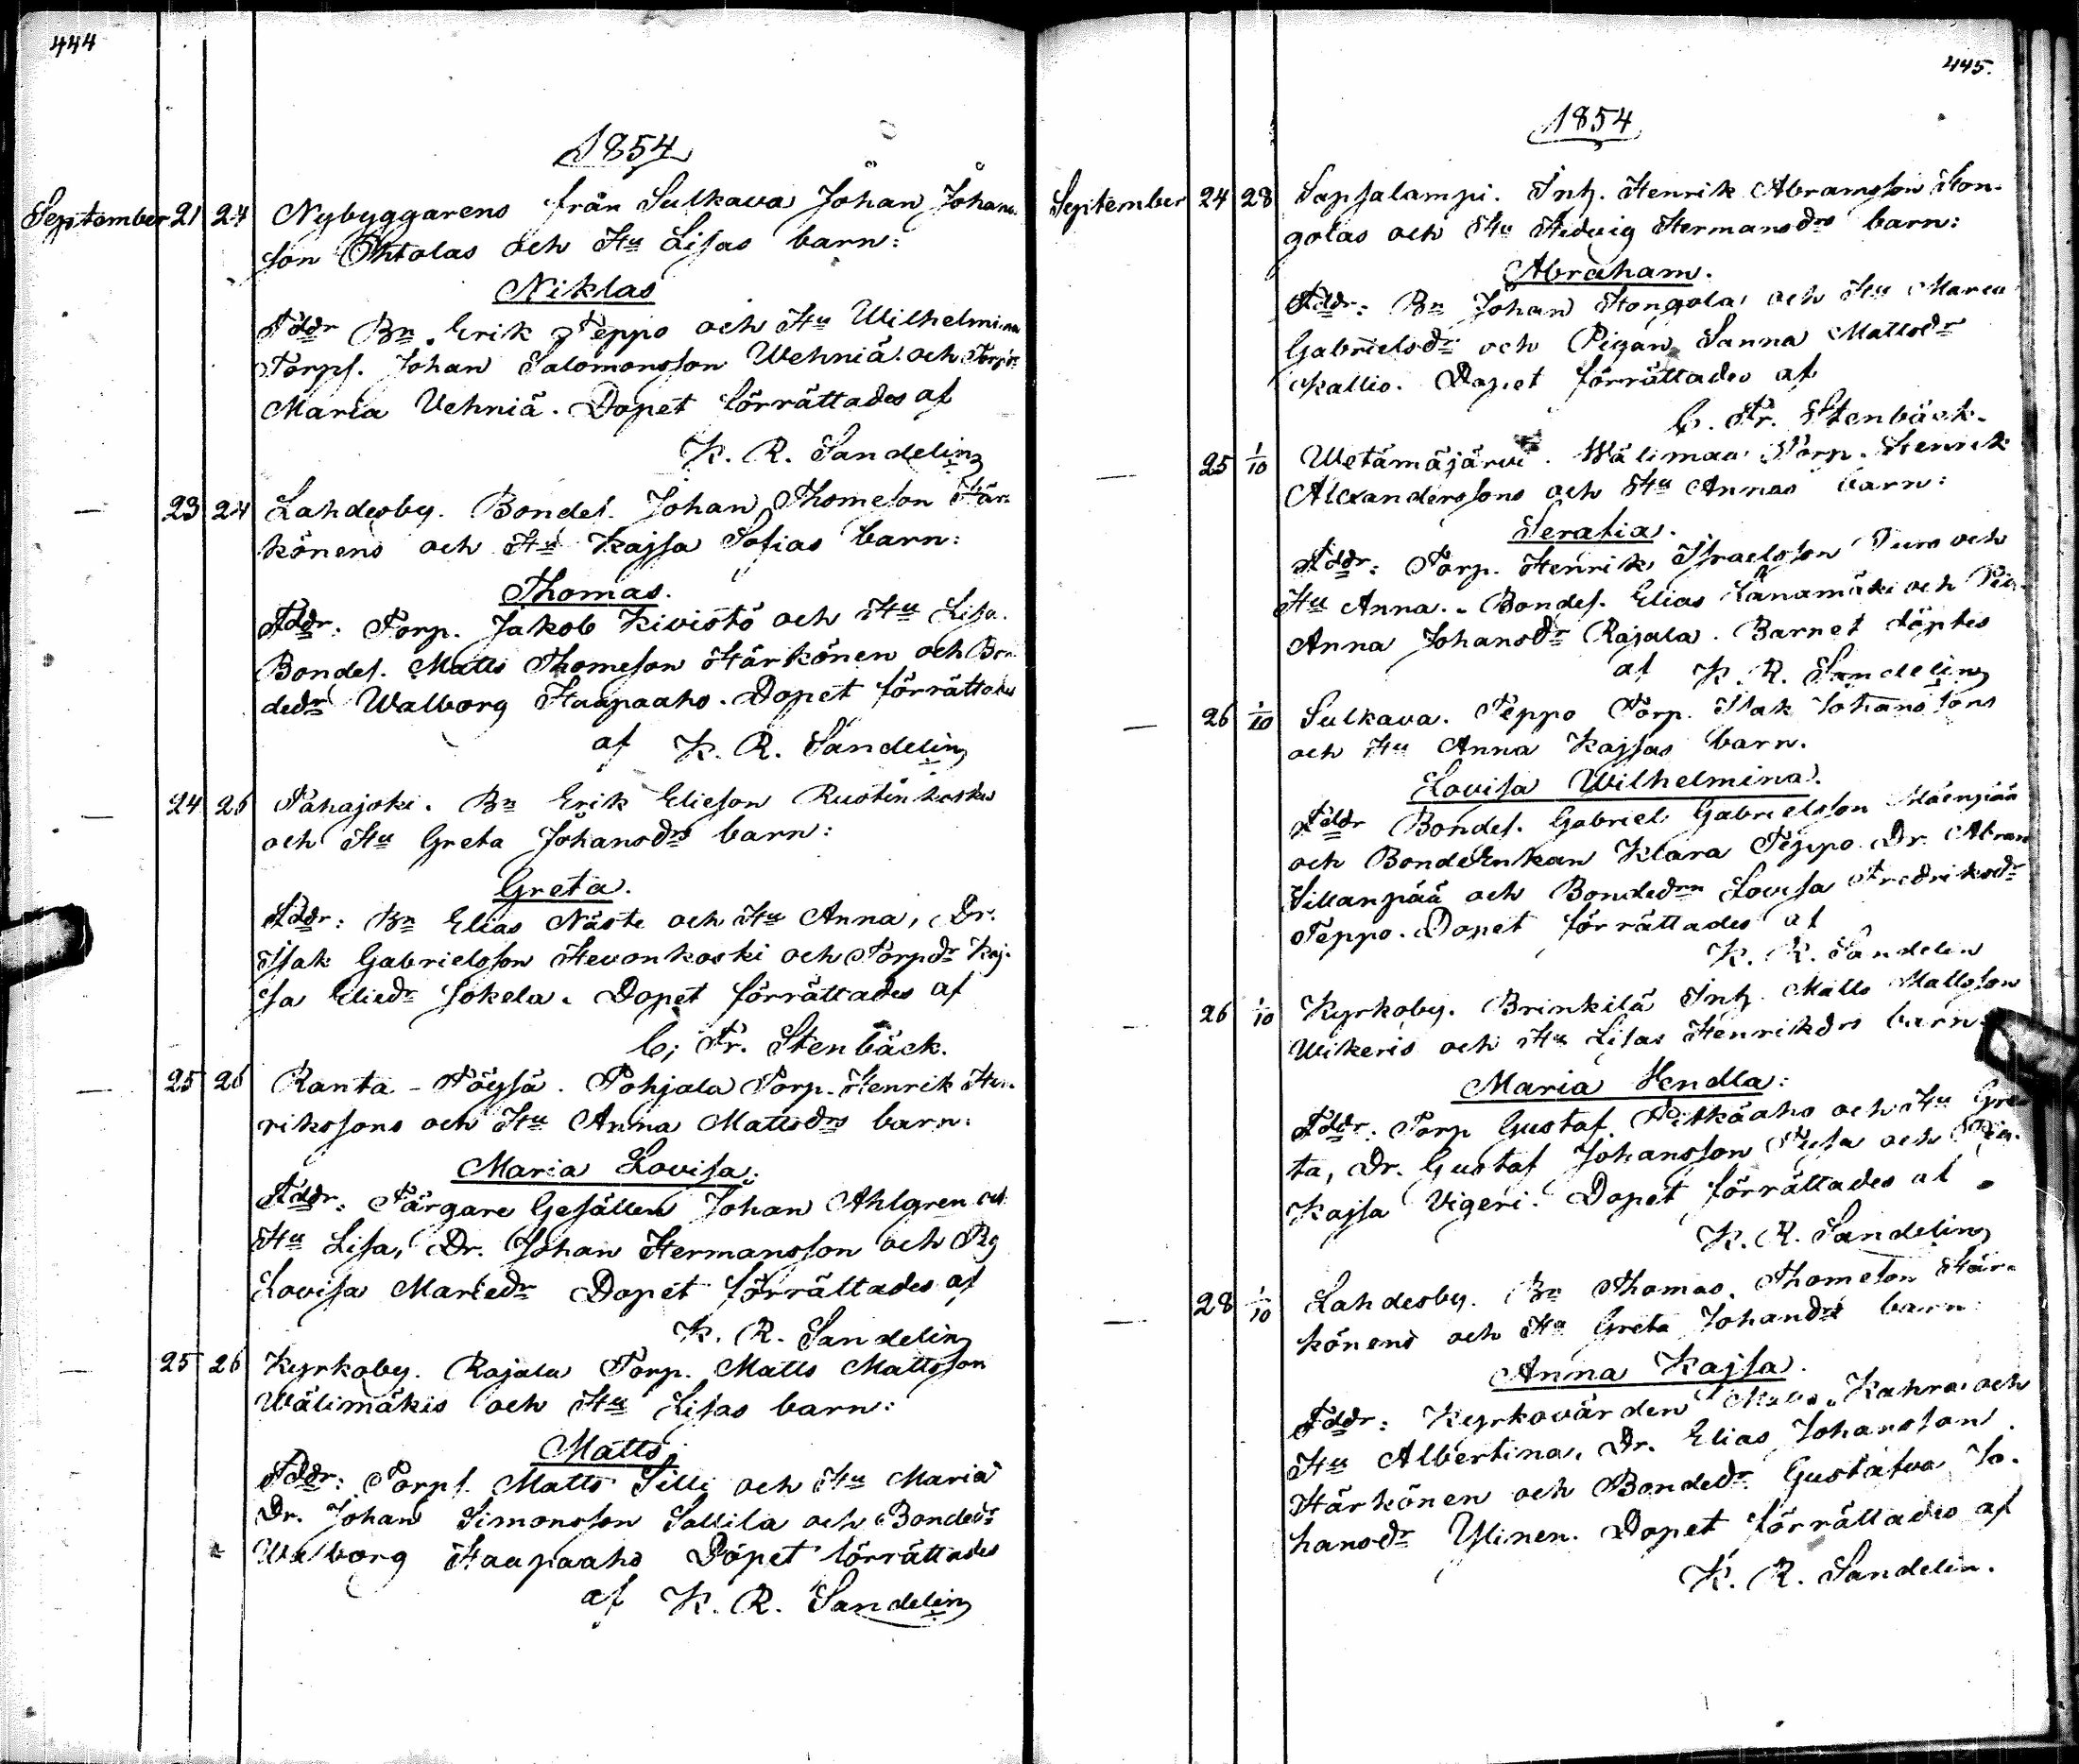 444
1854
September 21 24 Nybyggarens från Sulkava Johan Johans
son Ohtolas och Hu Lisas barn:
Niklas
Fddr Bn Erik Teppo och Hu Wilhelmina
Torps. Johan Salomonsson Wehniä och
Maria Vehniä. Dopet förrättades af
K. R. Sandelin
— 23 24 Lahdesby. Bondes. Johan Thomeson Här-
könens och Hu Kajsa Sofias barn:
Thomas.
Fddr: Torp. Jakob Kivistö och Hu Lisa.
Bondes. Matts Thomeson Härkönen och Bon
dedr Walborg Haapaaho. Dopet förrättades
af K. R. Sandelin
— 24 26 Pahajoki. Bn Erik Elieson Rustinkoskis
och Hu Greta Johansdrs barn:
Greta.
Fddr: Bn Elias Näste och Hu Anna, Dr.
Isak Gabrielsson Hevonkoski och Torpdr Kaj-
sa Eliedr Jokela. Dopet förrättades af
C. Fr. Stenbäck.
— 25 26 Ranta-Töysä. Pohjala Torp. Henrik Hen-
rikssons och Hu Anna Mattsdrs barn:
Maria Lovisa.
Fddr: Färgare Gesällen Johan Ahlgren och
Hu Lisa, Dr. Johan Hermansson och Pg
Lovisa Mariedr Dopet förrättades af
K. R. Sandelin
— 25 26 Kyrkoby. Rajala Torp. Matts Mattsson
Wälimäkis och Hu Lisas barn:
Matts.
Fddr: Torps. Matts Silli och Hu Maria
Dr. Johan Simonsson Sallila och Bondedr
Walborg Haapaaho Dopet förrättades
af K. R. Sandelin
445.
1854
September 24 28 Sapsalampi. Inh. Henrik Abramsson Hon-
golas och Hu Hedvig Hermansdrs barn:
Abraham.
Fddr: Bn Johan Hongola och Hu Maria
Gabrielsdr och Pigan Sanna Mattsdr
Kallio. Dopet förrättades af
C. Fr. Stenbäck.
— 25 1/10 Wetämäjärvi. Wälimaa Torp. Henrik
Alexanderssons och Hu Annas barn:
Serafia.
Fddr: Torp. Henrik Israelsson Turo och
Hu Anna. Bondes. Elias Länamäki och Pig.
Anna Johansdr Rajala. Barnet döptes
af K. R. Sandelin
— 26 1/10 Sulkava. Teppo Torp. Isak Johanssons
och Hu Anna Kajsas barn.
Lovisa Wilhelmina.
Fddr Bondes. Gabriel Gabrielsson Mäenpää
och BondeEnkan Klara Teppo Dr. Abram
Sillanpää och Bondedrn Lovisa Fredriksdr
Teppo. Dopet förrättades af
K. R. Sandelin
— 26 1/10 Kyrkoby. Brinkilä Inh. Matts Mattsson
Wikeris och Hu Lisas Henrikdrs barn:
Maria Hendla:
Fddr: Torp Gustaf Pitkäaho och Hu Gre
ta, Dr. Gustaf Johansson Pusa och Pig.
Kajsa Vigeri. Dopet förrättades af
K. R. Sandelin
— 28 1/10 Lahdesby. Bn Thomas Thomeson Här-
könens och Hu Greta Johandrs barn:
Anna Kajsa.
Fddr: Kyrkovärden Matts Kahra och
Hu Albertina, Dr. Elias Johansson
Härkönen och Bondedr Gustafva Jo-
hansdr Ylinen. Dopet förrättades af
K. R. Sandelin.